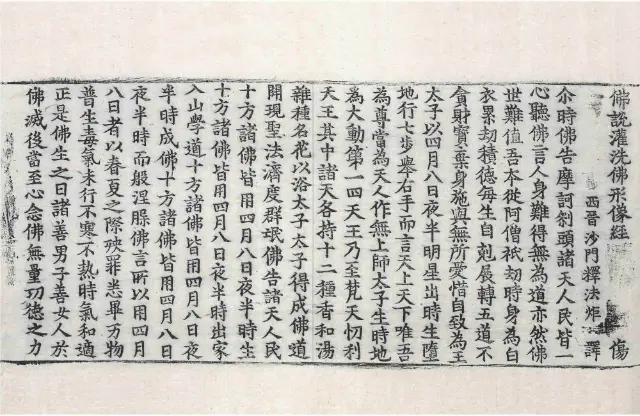 佛說灌洗佛形像經　傷
西晉沙門釋法炬　譯
尒時佛告摩訶剎頭諸天人民皆一
心聽佛言人身難得無為道亦然佛
世難值吾本從阿僧祇劫時身為白
衣累劫積德每生自剋展轉五道不
貪財寶棄身施與無所愛惜自致為王
太子以四月八日夜半明星出時生墮
地行七步舉右手而言天上天下唯吾
為尊當為天人作無上師太子生時地
為大動第一四天王乃至梵天忉利
天王其中諸天各持十二種香和湯
雜種名花以浴太子太子得成佛道
開現聖法濟度群氓佛告諸天人民
十方諸佛皆用四月八日夜半時生
十方諸佛皆用四月八日夜半時出家
入山學道十方諸佛皆用四月八日夜
半時成佛十方諸佛皆用四月八日
夜半時而般涅槃佛言所以用四月
八日者以春夏之際殃罪悉畢万物
普生毒氣未行不寒不熱時氣和適
正是佛生之日諸善男子善女人於
佛滅後當至心念佛無量功德之力